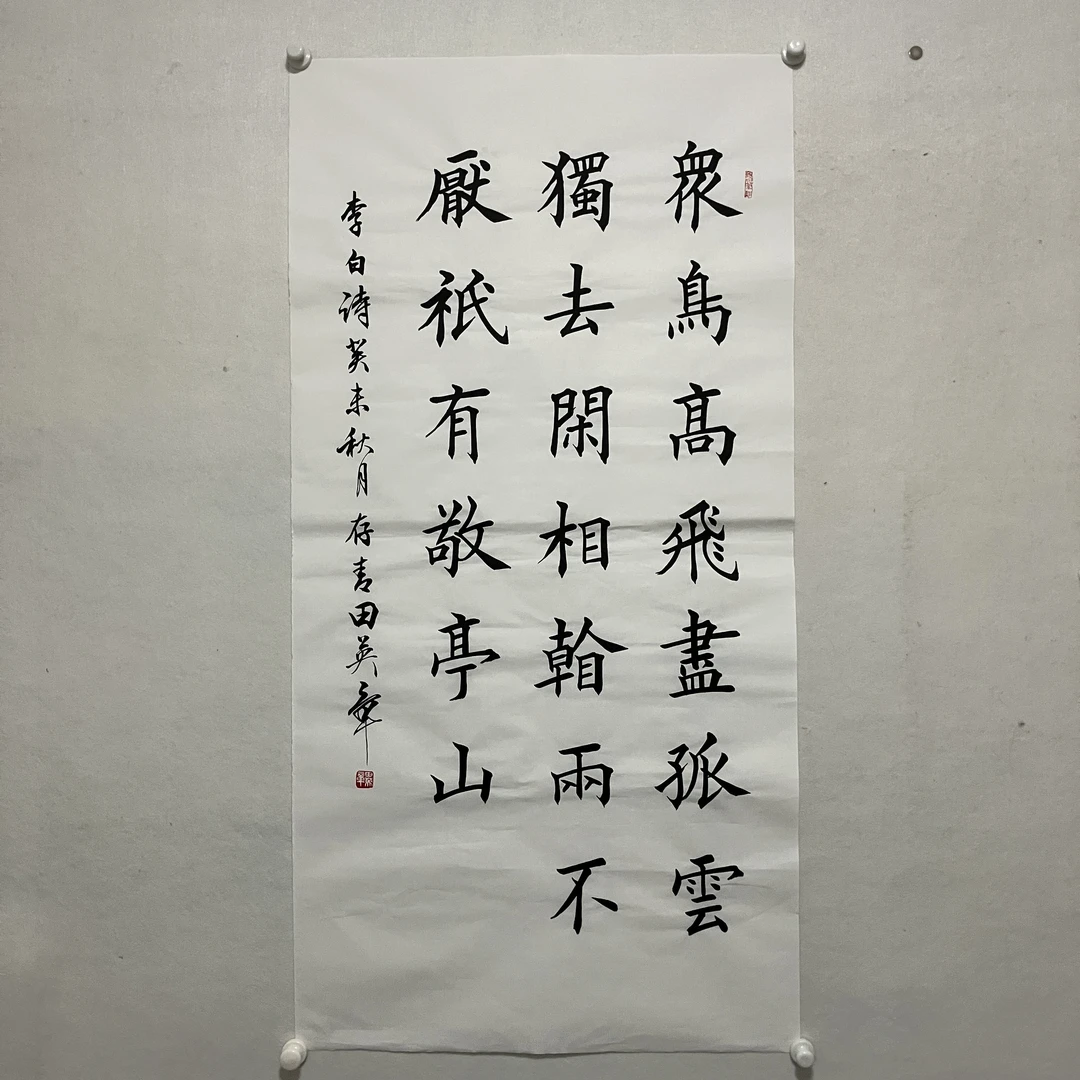 眾鳥髙飛盡孤雲
獨去閑相看兩不
厭祇有敬亭山
李白詩癸未秋月存青田英章